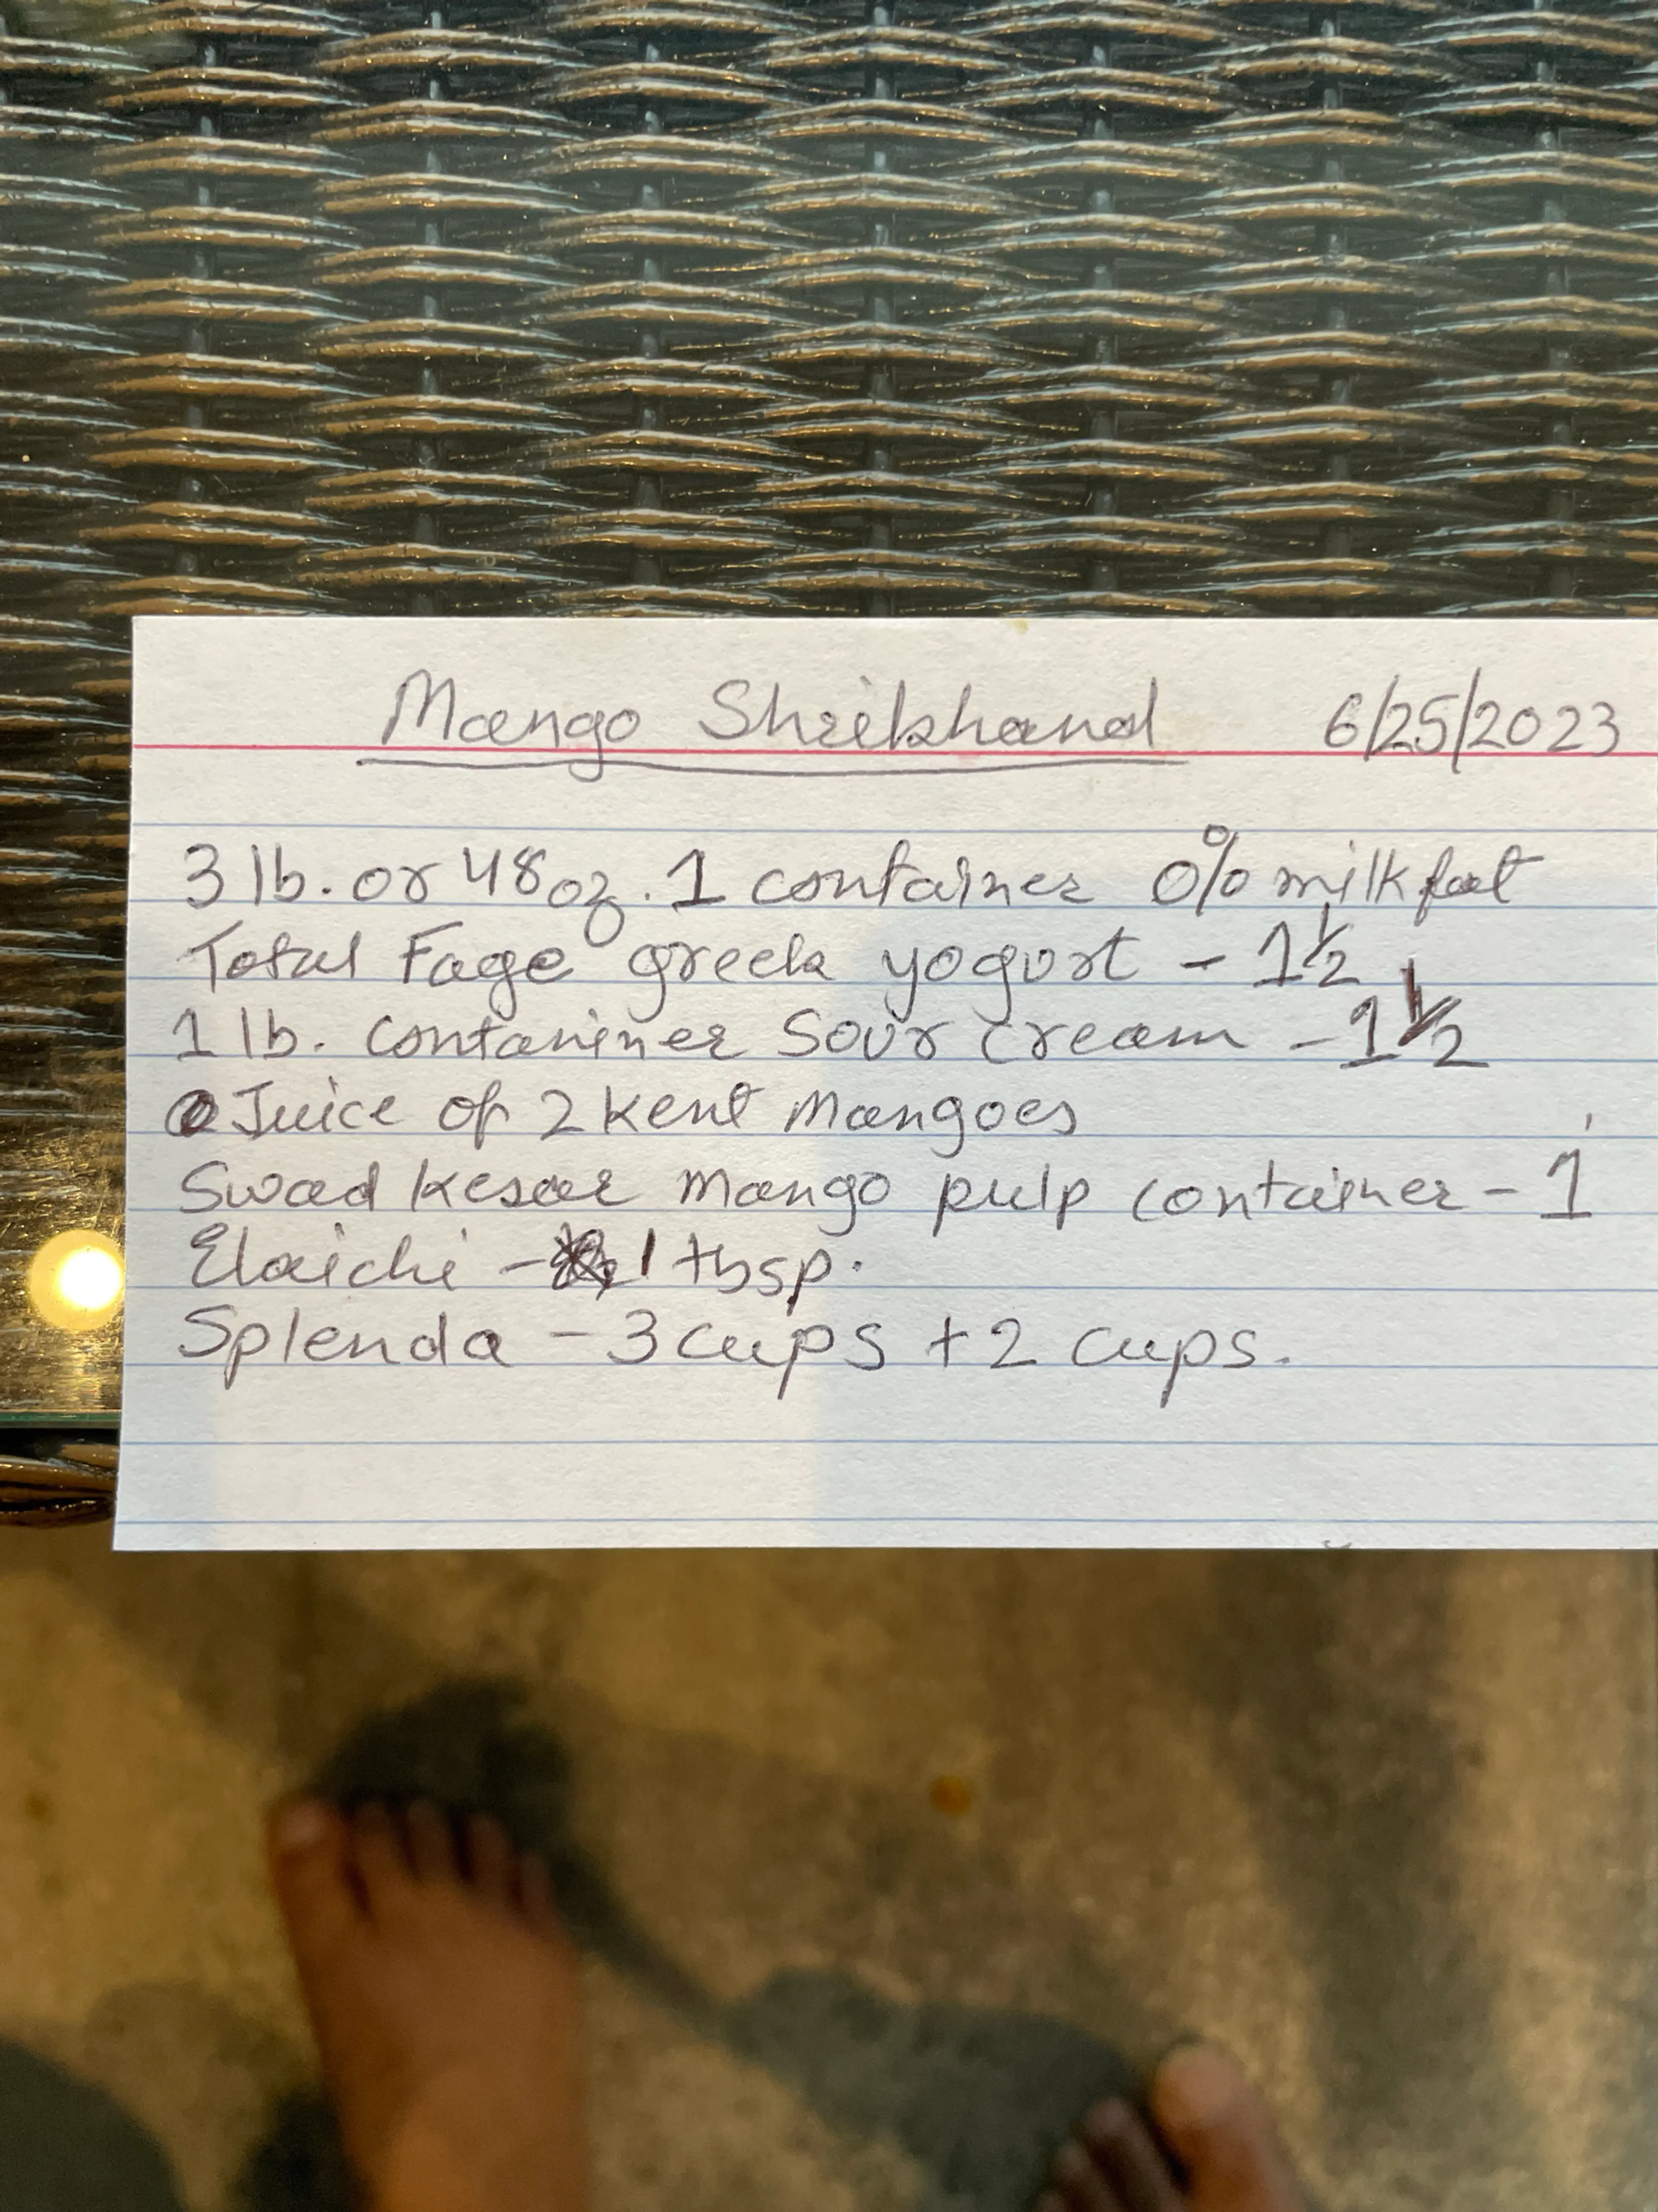 Mango Shrikhand 6/25/2023
3 lb. or 48 oz. 1 container 0% milkfat
Total Fage greek yogurt - 1 1/2
1 lb. Contaniner Sour cream - 1 1/2
Juice of 2 Kent Mangoes
Swad Kesar Mango pulp container - 1
Elaichi - 1 tbsp.
Splenda - 3 cups + 2 cups.